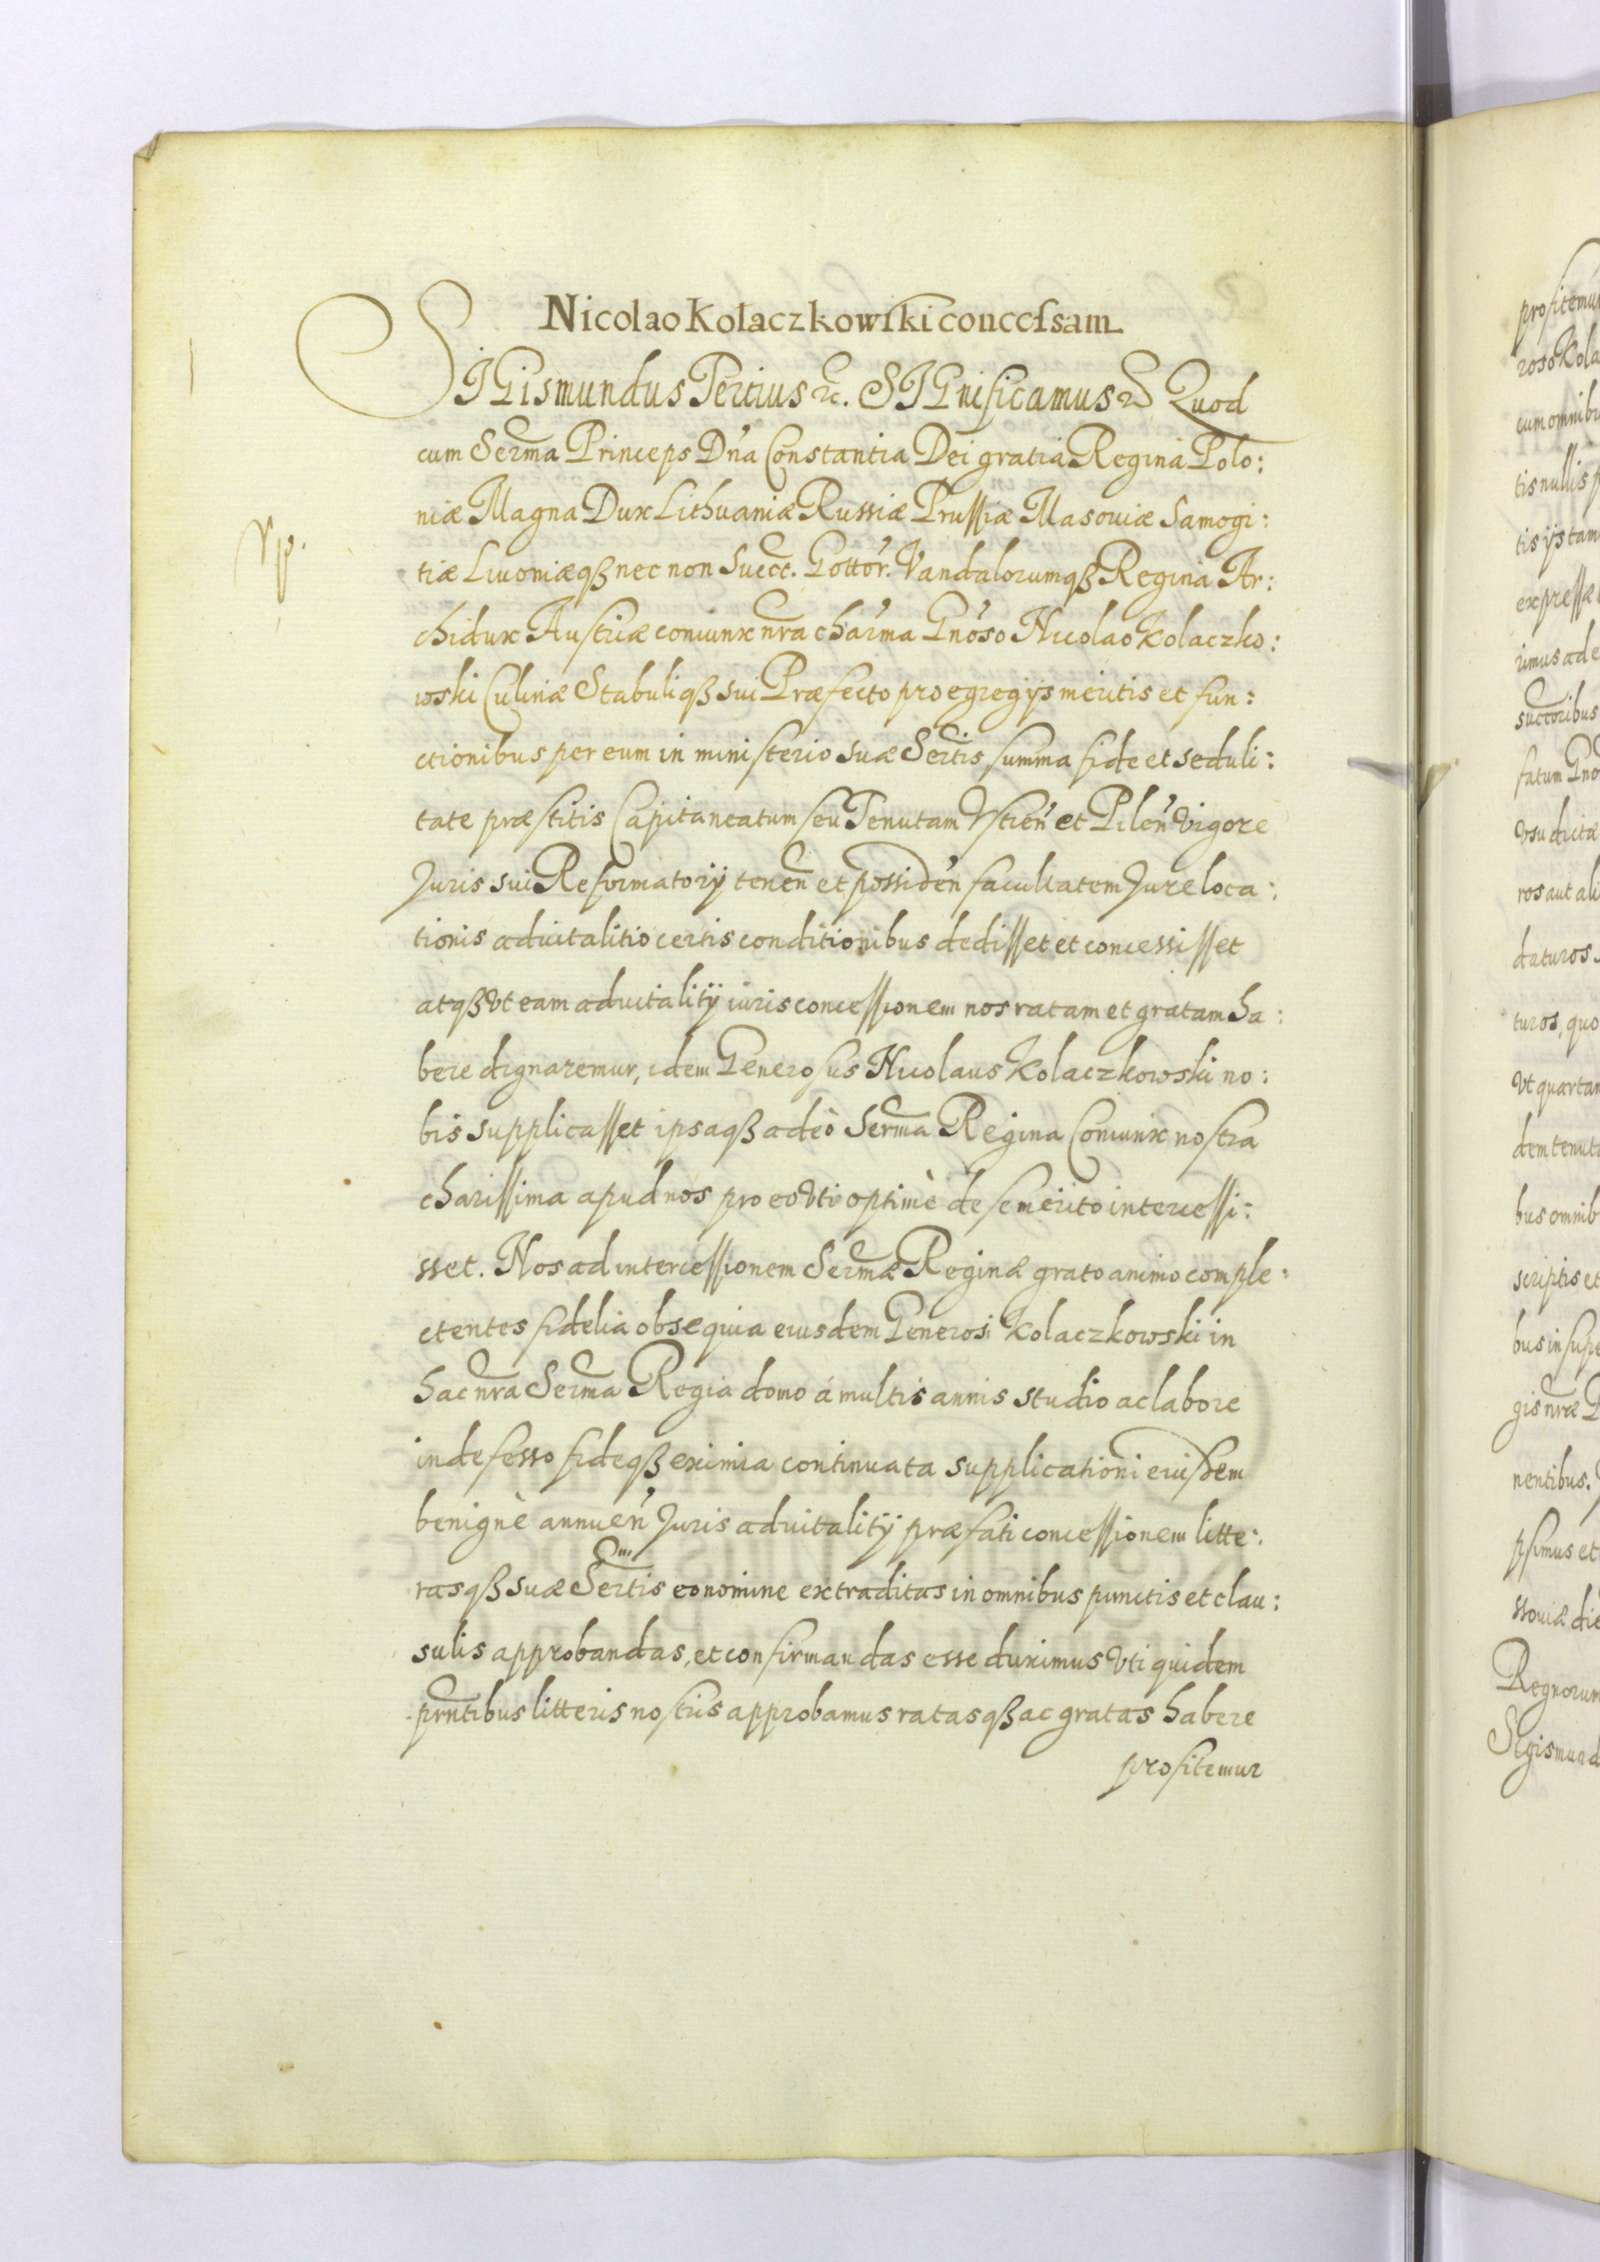 Nicolao Kolaczkowski concessam
SIGismundus Tertius etc. SIGnificamus etc Quod
cum Serma Princeps Dna Constantia Dei gratia Regina Polo:
niæ Magna Dux Lithuaniæ Russiæ Prussiæ Masouiæ Samogi:
tiæ Liuoniæqß nec non Suecc. Gottor. Vandalorumqß Regina Ar:
chidux Austriæ coniunx nra charma Gnoso Nicolao Kolaczko:
wski Culinæ Stabuliqß sui Præfecto pro egregijs meritis et fun:
ctionibus per eum in ministerio suæ Sertis summa fide et seduli:
tate præstitis Capitaneatum seu Tenutam Vstien et Pilen vigore
Juris sui Reformatorij tenen et possiden facultatem Jure loca:
tionis aduitalitio certis conditionibus dedisset et concessisset
atqß vt eam aduitalitij iuris concessionem nos ratam et gratam ha:
bere dignaremur, idem Generosus Nicolaus Kolaczkowski no:
bis supplicasset ipsaqß adeò Serma Regina Coniunx nostra
charissima apud nos pro eo vti optimè de se merito intercessi:
sset. Nos ad intercessionem Sermæ Reginæ grato animo comple:
ctentes fidelia obsequia eiusdem Generosi Kolaczkowski in
hac nra Serma Regia domo á multis annis studio ac labore
indefesso fideqß eximia continuata supplicationi eiusdem
benignè annuen Juris aduitalitij præfati concessionem litte:
rasqß suæ Sertis eo nomine extraditas in omnibus punctis et clau:
sulis approbandas, et confirmandas esse duximus vti quidem
prntibus litteris nostris approbamus ratasqß ac gratas habere
profitemur
profitemu
roso Kola
cum omnibu
tis nullis p
tis ijs tam
expressæ
imus ad e
succoribus
fatum Gno
vsu dictæ
ros aut ali
daturos
turos, quo
vt quartam
dem tenuta
bus omnib
scriptis et
bus in supe
gis nræ P
nentibus.
pssimus et
ssouiæ die
Regnorum
Sigismund